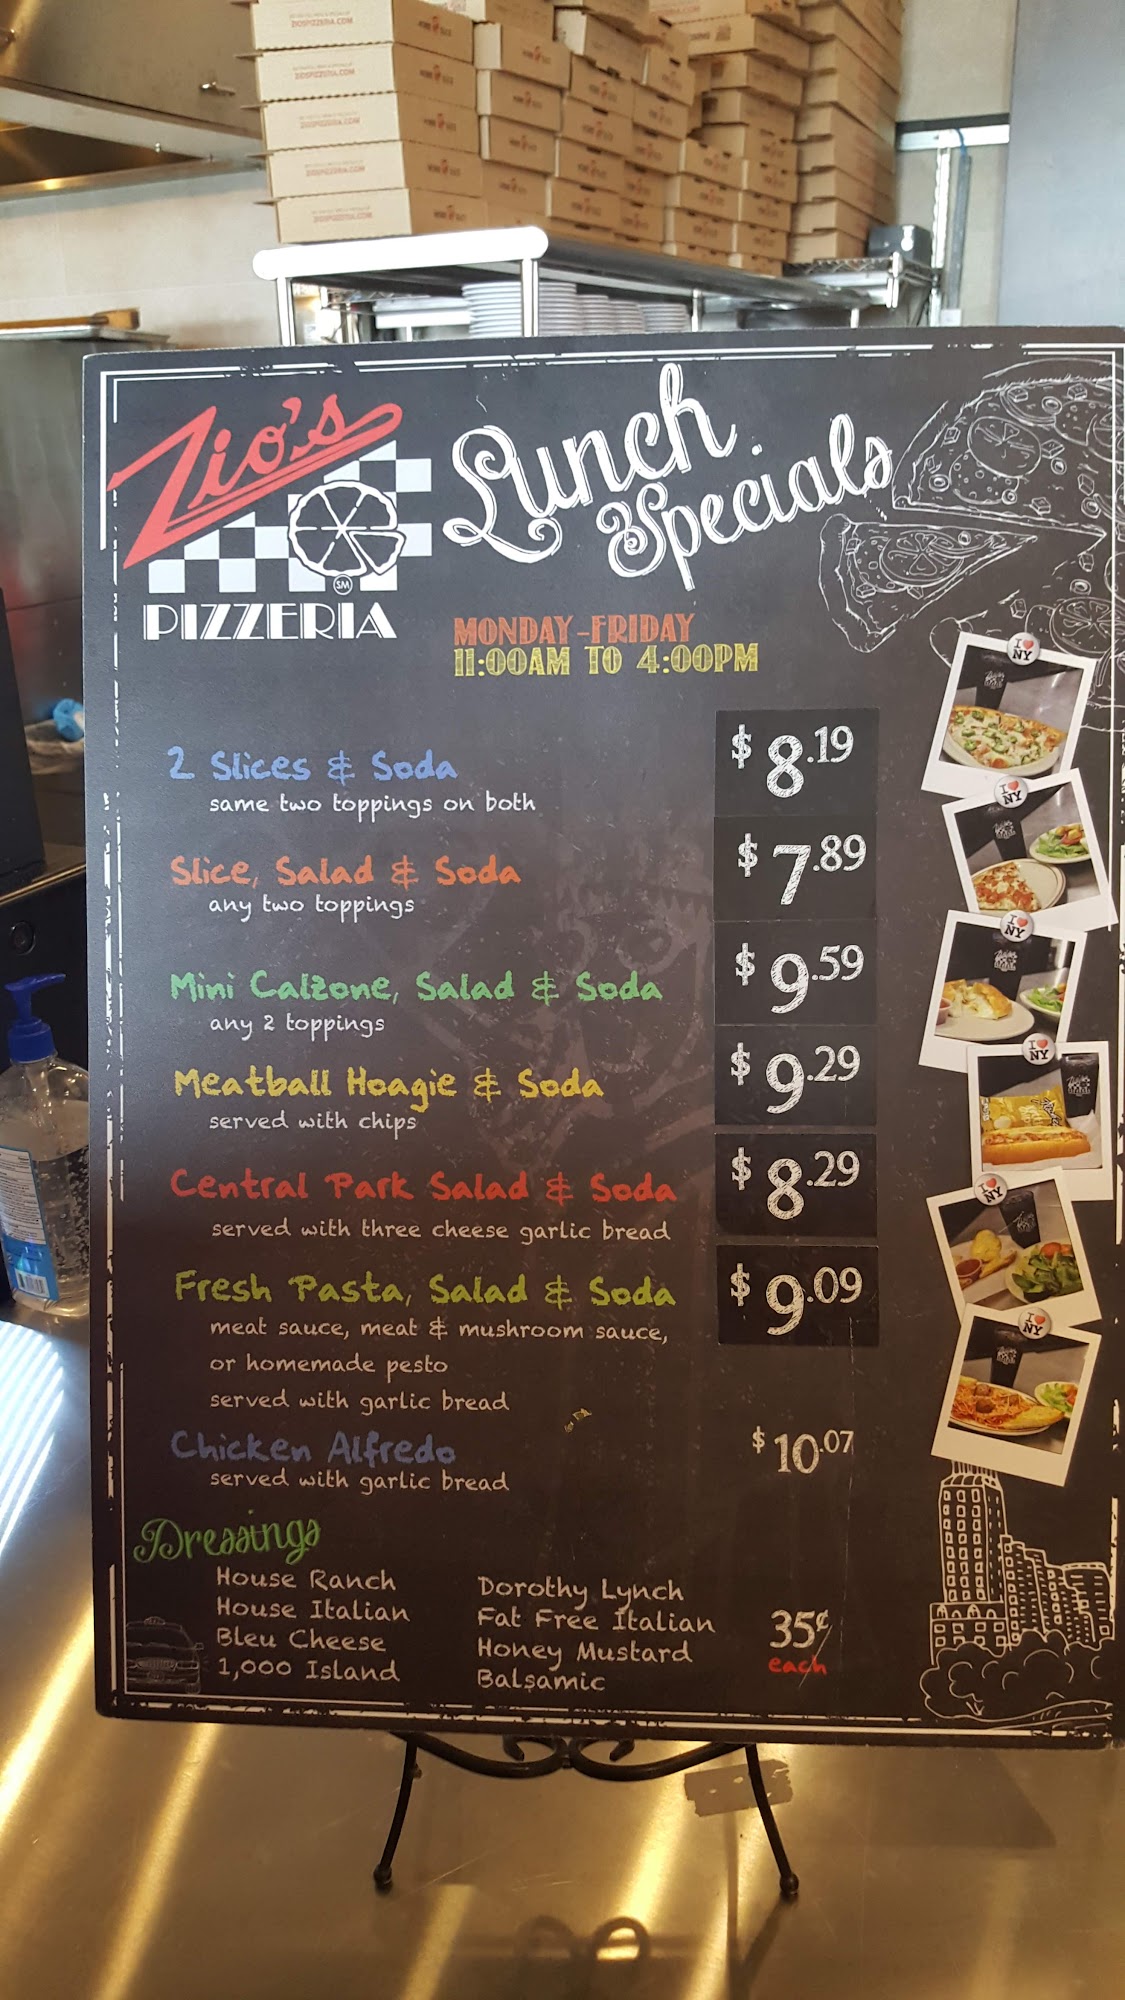 ZIOSPIZZERIA.COM
ZIOSPIZZERIA.COM
ZIOSPIZZERIA.COM
ZIOSPIZZERIA.COM
ZIOSPIZZERIA.COM
Zio's
SM
PIZZERIA
Lunch
Specials
MONDAY-FRIDAY
11:00AM TO 4:00PM
2 Slices & Soda $8.19
same two toppings on both
Slice, Salad & Soda $7.89
any two toppings
Mini Calzone, Salad & Soda $9.59
any 2 toppings
Meatball Hoagie & Soda $9.29
served with chips
Central Park Salad & Soda $8.29
served with three cheese garlic bread
Fresh Pasta, Salad & Soda $9.09
meat sauce, meat & mushroom sauce,
or homemade pesto
served with garlic bread
Chicken Alfredo $10.07
served with garlic bread
I ♥ NY
I ♥ NY
I ♥ NY
I ♥ NY
I ♥ NY
I ♥ NY
Dressings
House Ranch
House Italian
Bleu Cheese
1,000 Island
Dorothy Lynch
Fat Free Italian
Honey Mustard
Balsamic
35¢
each